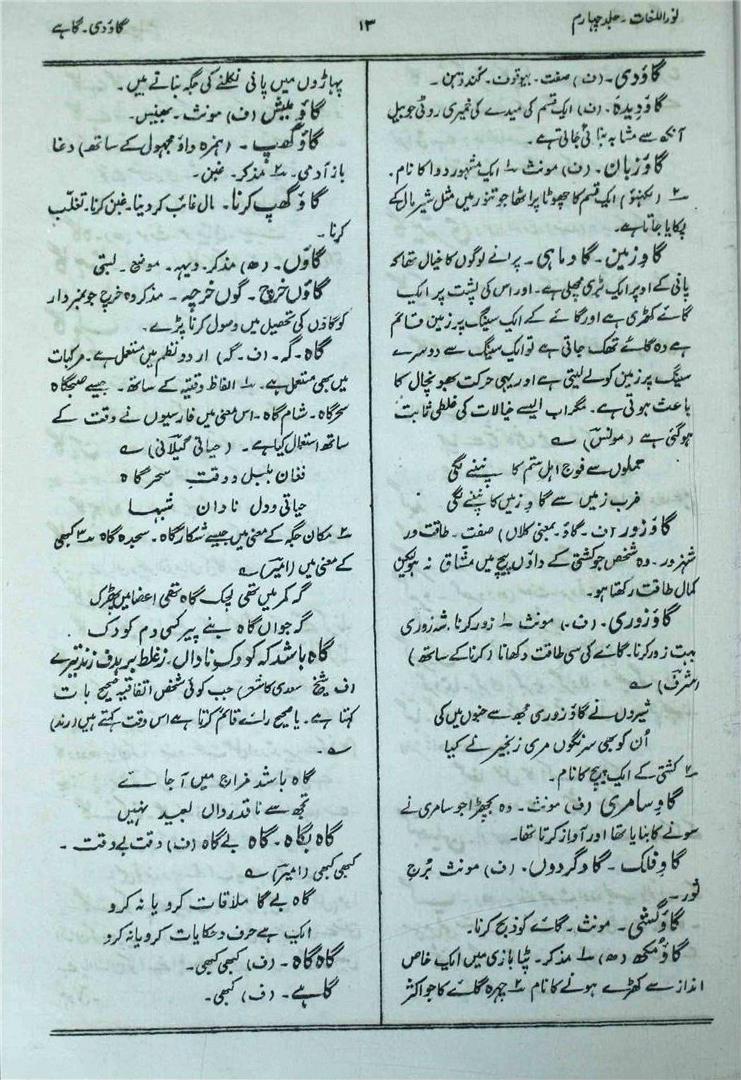 نور اللغات۔ جلد چہارم
۱۳
گاؤدی۔ گاہے
گاؤدی۔ (ف) صفت۔ بیوقوف۔ کُند ذہن۔
گاؤدیدہ۔ (ف) ایک قسم کی میدے کی خمیری روٹی جو بیل
آنکھ سے مشابہ بنائی جاتی ہے۔
گاؤ زبان۔ (ف) مونث ۱؎ ایک مشہور دوا کا نام۔
۲؎ (لکھنؤ) ایک قسم کا چھوٹا پراٹھا جو تنور میں مثل شیرمال کے
پکایا جاتا ہے۔
گاوِ زمین۔ گاوِ ماہی۔ پرانے لوگوں کا خیال تھا کہ
پانی کے اوپر ایک بڑی مچھلی ہے۔ اور اس کی پشت پر ایک
گائے کھڑی ہے اور گائے کے ایک سینگ پر زمین قائم
ہے وہ گائے تھک جاتی ہے تو ایک سینگ سے دوسرے
سینگ پر زمین کو لے لیتی ہے اور یہی حرکت بھونچال کا
باعث ہوتی ہے۔ مگر اب ایسے خیالات کی غلطی ثابت
ہوگئی ہے (مونس) ؎
حملوں سے فوج اہل ستم کانپنے لگی
ضرب زمیں سے گاوِ زمیں کانپنے لگی
گاؤ زور (ف۔ گاؤ۔ بمعنی کلاں) صفت۔ طاقت ور
شہ زور۔ وہ شخص جو کشتی کے داؤں پیچ میں مشّاق نہ ہو لیکن
کمال طاقت رکھتا ہو۔
گاؤ زوری۔ (ف۔) مونث ۱؎ زور کرنا۔ شہ زوری
بہت زور کرنا۔ گائے کی سی طاقت دکھانا (کرنا کے ساتھ)
(شرف) ؎
شیروں نے گاؤ زوری مجھ سے جنوں میں کی
اُن کو بھی سرنگوں مری زنجیر نے کیا
۲؎ کشتی کے ایک پیچ کا نام۔
گاوِ سامری (ف) مونث۔ وہ بچھڑا جو سامری نے
سونے کا بنایا تھا اور آواز کرتا تھا۔
گاوِ فلک۔ گاوِ گردوں۔ (ف) مونث بُرج
ثور۔
گاؤ کُشی۔ مونث۔ گائے کو ذبح کرنا۔
گاؤ مُکھ (ھ) ۱؎ مذکر۔ پٹا بازی میں ایک خاص
انداز سے کھڑے ہونے کا نام ۲؎ چہرہ گائے کا جو اکثر
پہاڑوں میں پانی نکلنے کی جگہ بناتے ہیں۔
گاؤ میش (ف) مونث۔ بھینس۔
گاؤ گھپ۔ (ہمزہ واؤ مجہول کے ساتھ) دغا
باز آدمی۔ ۲؎ مذکر۔ غبن۔
گاؤ گھپ کرنا۔ مال غائب کر دینا۔ غبن کرنا۔ تغلّب
کرنا۔
گاؤں۔ (ھ) مذکر۔ دیہہ۔ موضع۔ بستی
گاؤں خرچ۔ گوں خرچہ۔ مذکر وہ خرچ جو نمبردار
کو گاؤں کی تحصیل میں وصول کرنا پڑے۔
گاہ۔ گہ۔ (ف۔ گہ) اردو نظم میں مستعمل ہے۔ مرکبات
میں بھی مستعمل ہے۔ ۱؎ الفاظ وقتیہ کے ساتھ۔ جیسے صبحگاہ
سحرگاہ۔ شام گاہ۔ اس معنی میں فارسیوں نے وقت کے
ساتھ استعمال کیا ہے۔ (حیاتی گیلانی) ؎
فغان بلبل و وقتِ سحرگاہ
حیاتی و دل نادان شبہا
۲؎ مکان جگہ کے معنی میں جیسے شکارگاہ۔ سجدہ گاہ ۳؎ کبھی
کے معنی میں (امیر) ؎
گہ کمر میں تھی لچک گاہ تھی اعضا میں پھڑک
گہ جواں گاہ بنے پیر کسی دم کودک
گاہ باشد کہ کودکِ ناداں۔ ز غلط بر ہدف زند تیرے
(ف شیخ سعدی کا شعر) جب کوئی شخص اتفاقیہ صحیح بات
کہتا ہے۔ یا صحیح رائے قائم کرتا ہے اس وقت کہتے ہیں (رند)
؎
گاہ باشد مزاج میں آجائے
تجھ سے نا قدرداں بعید نہیں
گاہ بگاہ۔ گاہ بے گاہ (ف) وقت بے وقت۔
کبھی کبھی (امیر) ؎
گاہ بے گا ملاقات کرو یا نہ کرو
ایک ہے حرف و حکایات کرو یا نہ کرو
گاہ گاہ۔ (ف) کبھی کبھی۔
گاہے۔ (ف) کبھی۔